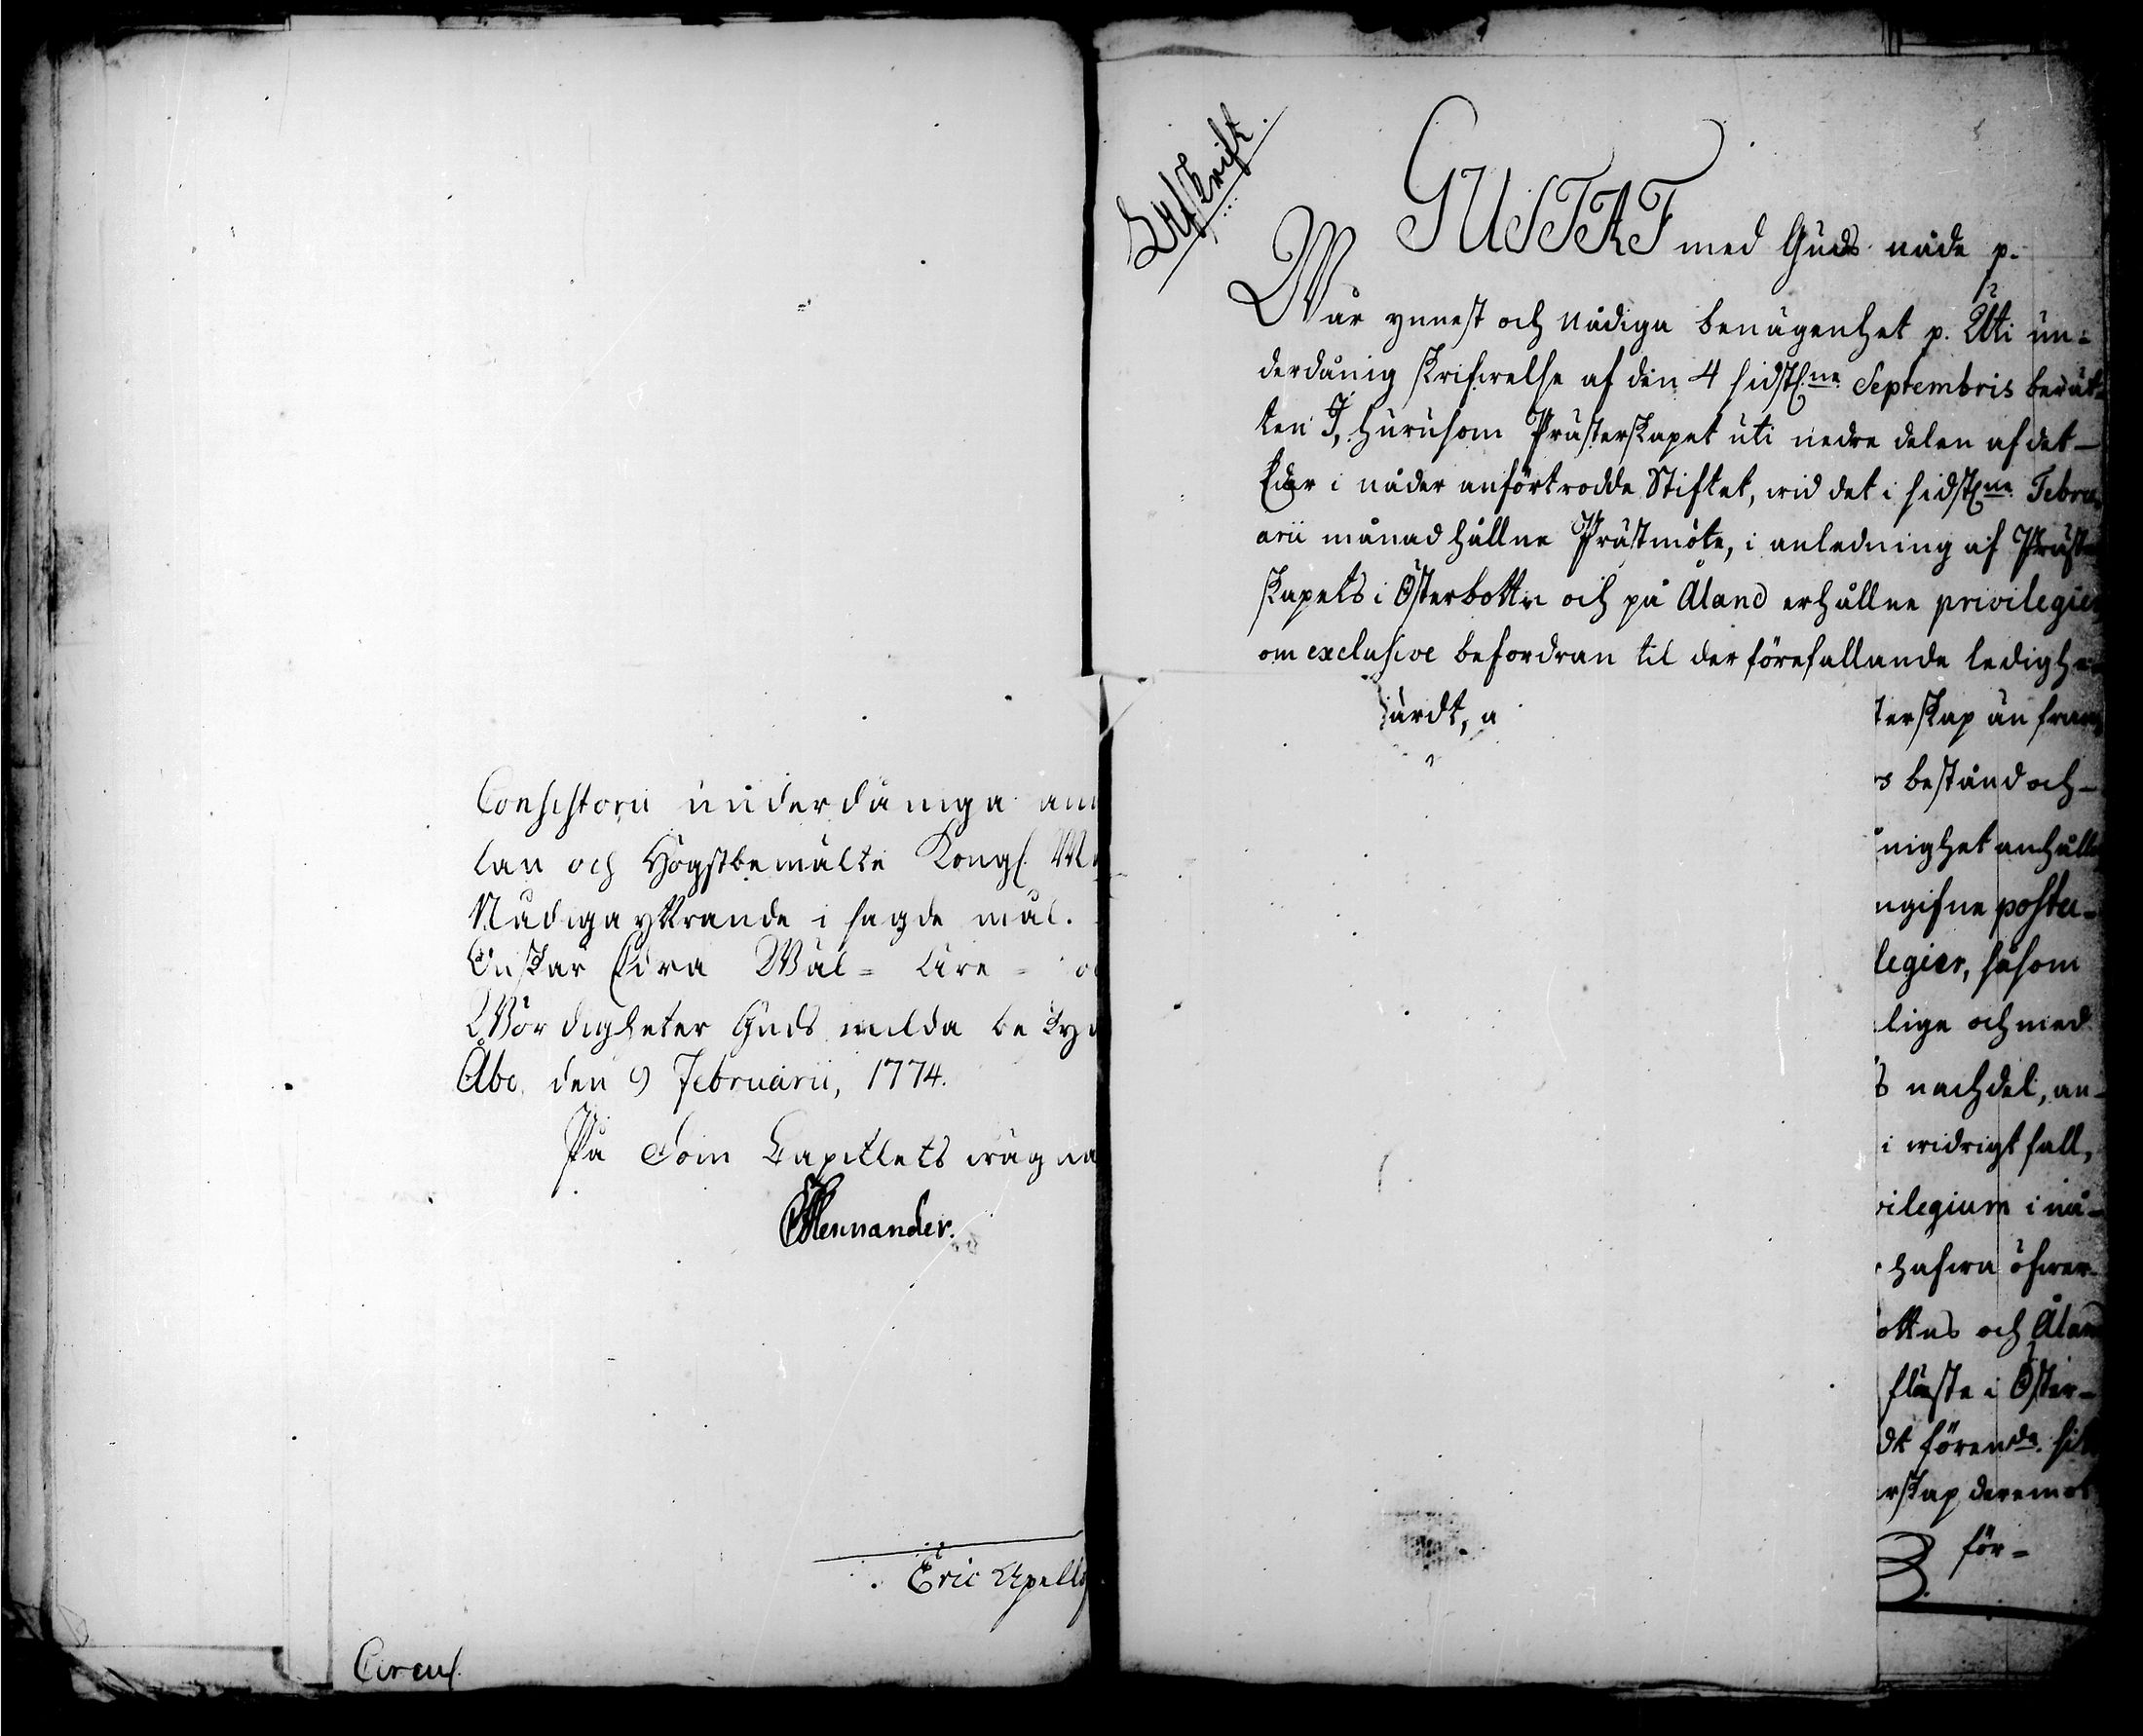 Consistorii underdåniga an
lan och Högstbemälte Kongl. M
Nådiga yttrande i sagde mål.
Önskar Edra Wäl= Äre=
Wördigheter Guds milda be
Åbo, den 9 Februarii, 1774.
På Dom Capitlets wägna
Mennander.
Eric Apell
Circul.
Afskrift.
GUSTAF med Guds nåde p.
Wår ynnest och nådiga benägenhet p. Uti un=
derdånig skrifwelse af den 4 sidstl:ne Septembris berät=
ten I, hurusom Prästerskapet uti nedre delen af det
Eder i nåder anförtrodde Stiftet, wid det i sidstl:ne Febru
arii månad hållne Prästmöte, i anledning af Präste
skapets i Österbottn och på Åland erhållne privilegier
om exclusive befordran til der förefallande ledighe
ärdt, a
terskap än fram
s bestånd och
nighet anhålle
ngifne postu-
legier, såsom
lige och med
s nachdel, an-
i widrigt fall,
vilegium i nå-
hafwa öfwer-
ottns och Åland
fläste i Öster-
dt förende. sik
rskap deremot
för=